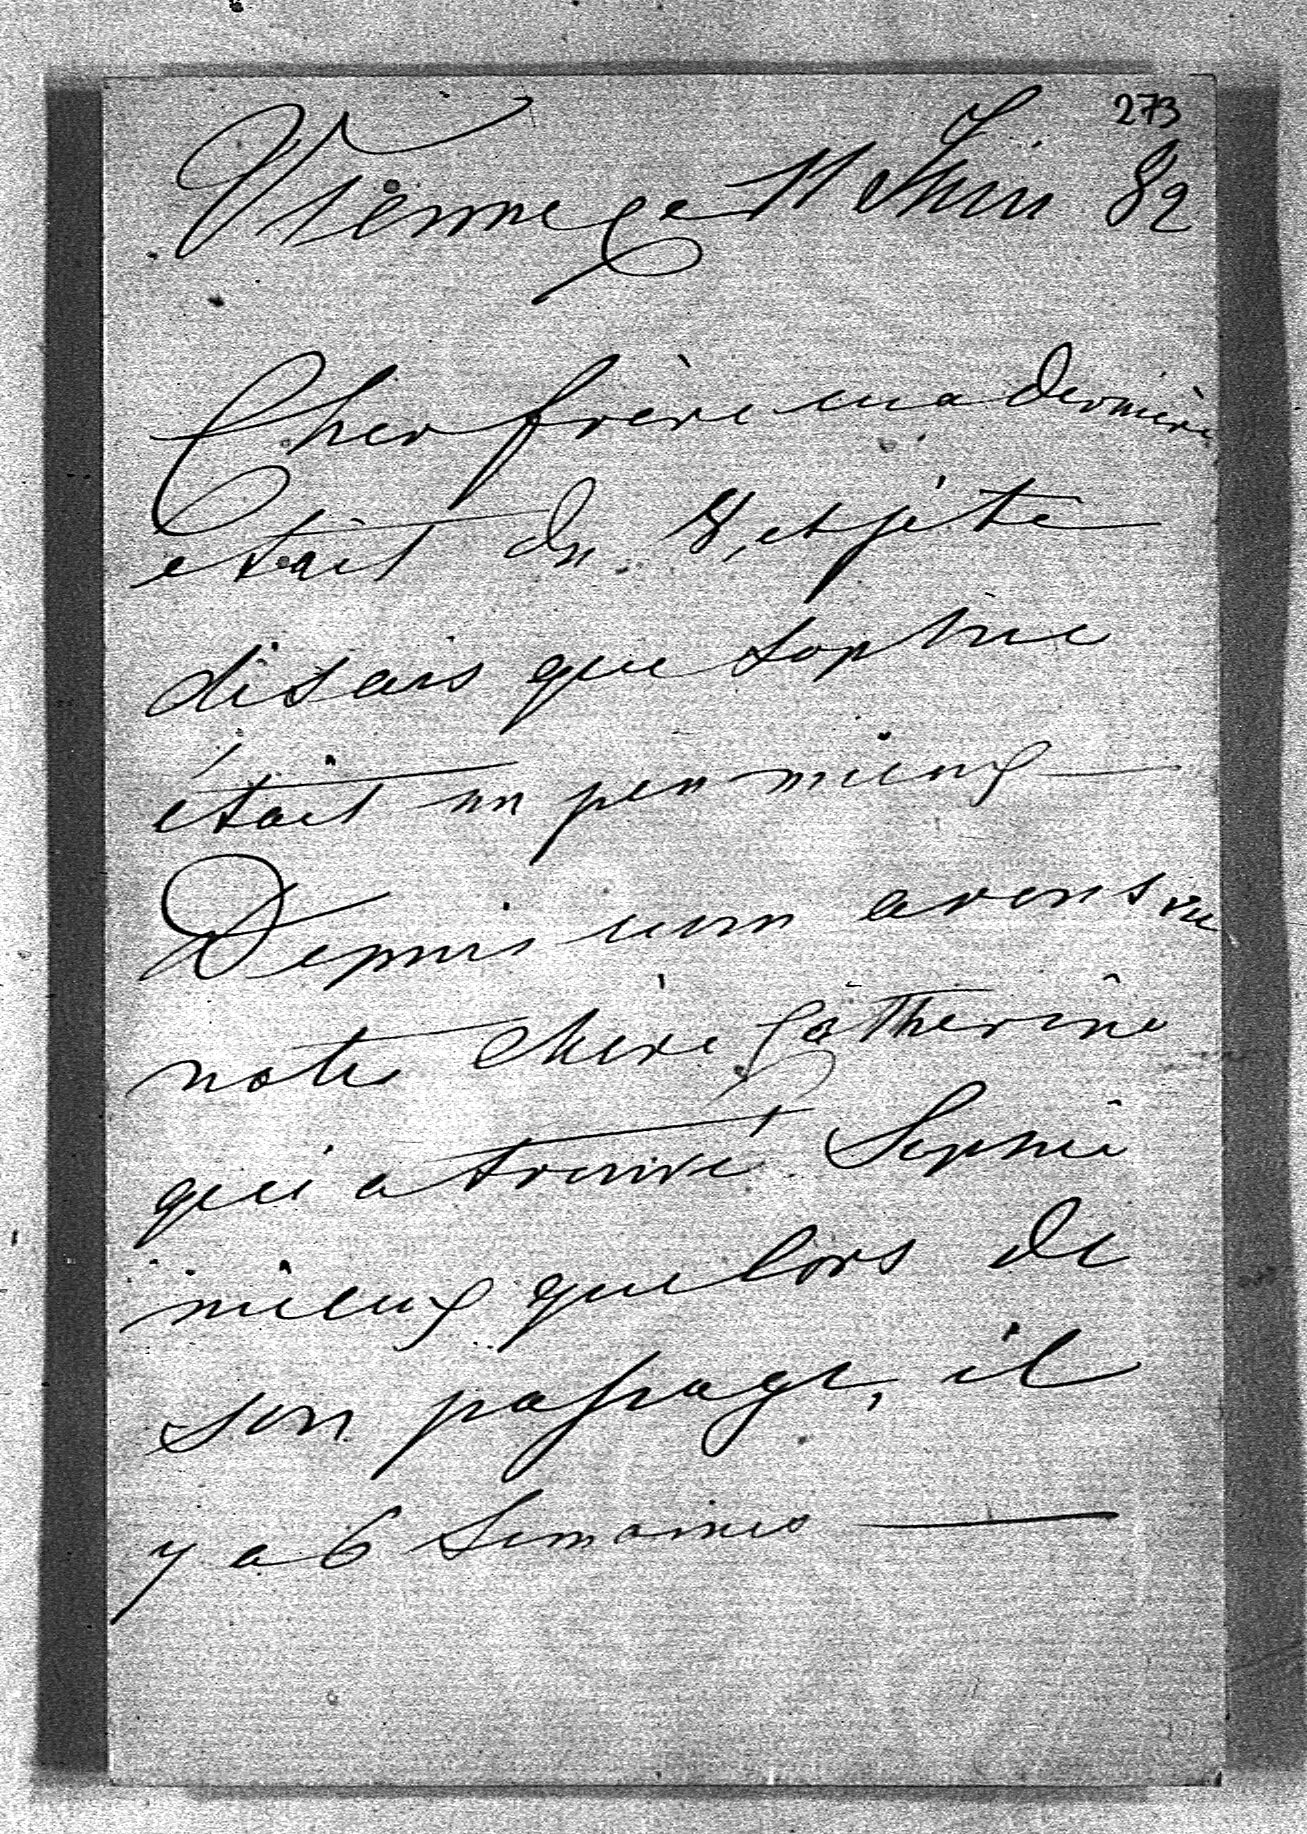 273
Vienne ce 11 Juin 82
Cher frère ma dernière
etait du 8, et je te
disais que Sophie
était un peu mieux —
Depuis nous avons vu
notre chère Catherine
qui a trouvé Sophie
mieux que lors de
son passage, il
y a 6 Semaines —